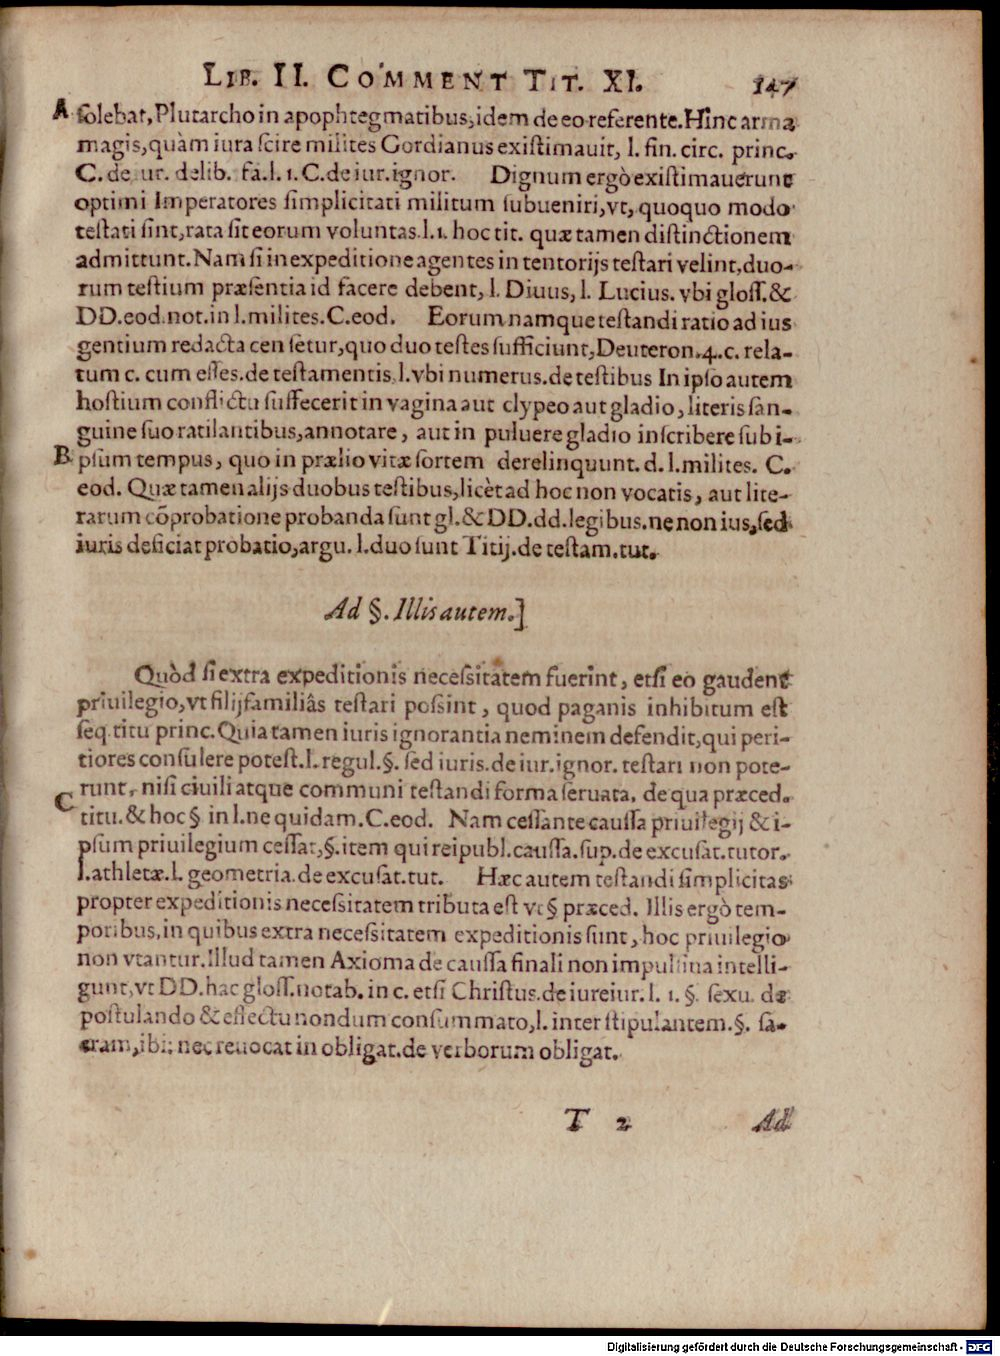 LIB. II. COMMENT TIT. XI. 147
A solebat, Plutarcho in apophtegmatibus, idem de eo referente. Hinc arma
magis, quàm iura scire milites Gordianus existimauit, l. fin. circ. princ.
C. de iur. delib. fa. l. 1. C. de iur. ignor. Dignum ergò existimauerunt
optimi Imperatores simplicitati militum subueniri, vt, quoquo modo
testati sint, rata sit eorum voluntas. l. 1. hoc tit. quæ tamen distinctionem
admittunt. Nam si in expeditione agentes in tentorijs testari velint, duo-
rum testium præsentia id facere debent, l. Diuus, l. Lucius. vbi gloss. &
DD. eod. not. in l. milites. C. eod. Eorum namque testandi ratio ad ius
gentium redacta censetur, quo duo testes sufficiunt, Deuteron. 4. c. rela-
tum c. cum esses. de testamentis, l. vbi numerus. de testibus In ipso autem
hostium conflictu suffecerit in vagina aut clypeo aut gladio, literis san-
guine suo ratilantibus, annotare, aut in puluere gladio inscribere sub i-
B psum tempus, quo in prælio vitæ sortem derelinquunt. d. l. milites. C.
eod. Quæ tamen alijs duobus testibus, licèt ad hoc non vocatis, aut lite-
rarum cõprobatione probanda sunt gl. & DD. dd. legibus. ne non ius, sed
iuris deficiat probatio, argu. l. duo sunt Titij. de testam. tut.
Ad §. Illis autem.]
Quòd si extra expeditionis necessitatem fuerint, etsi eo gaudent
priuilegio, vt filijfamiliâs testari possint, quod paganis inhibitum est
seq. titu princ. Quia tamen iuris ignorantia neminem defendit, qui peri-
tiores consulere potest. l. regul. §. sed iuris. de iur. ignor. testari non pote-
C runt, nisi ciuili atque communi testandi forma seruata, de qua præced.
titu. & hoc § in l. ne quidam. C. eod. Nam cessante caussa priuilegij & i-
psum priuilegium cessat, §. item qui reipubl. caussa. sup. de excusat. tutor.
l. athletæ. l. geometria. de excusat. tut. Hæc autem testandi simplicitas
propter expeditionis necessitatem tributa est vt § præced. Illis ergò tem-
poribus, in quibus extra necessitatem expeditionis sunt, hoc priuilegio
non vtantur. Illud tamen Axioma de caussa finali non impulsiua intelli-
gunt, vt DD. hac gloss. notab. in c. etsi Christus. de iureiur. l. 1. §. sexu. de
postulando & effectu nondum consummato, l. inter stipulantem. §. sa-
cram, ibi: nec reuocat in obligat. de verborum obligat.
T 2 Ad
Digitalisierung gefördert durch die Deutsche Forschungsgemeinschaft - DFG